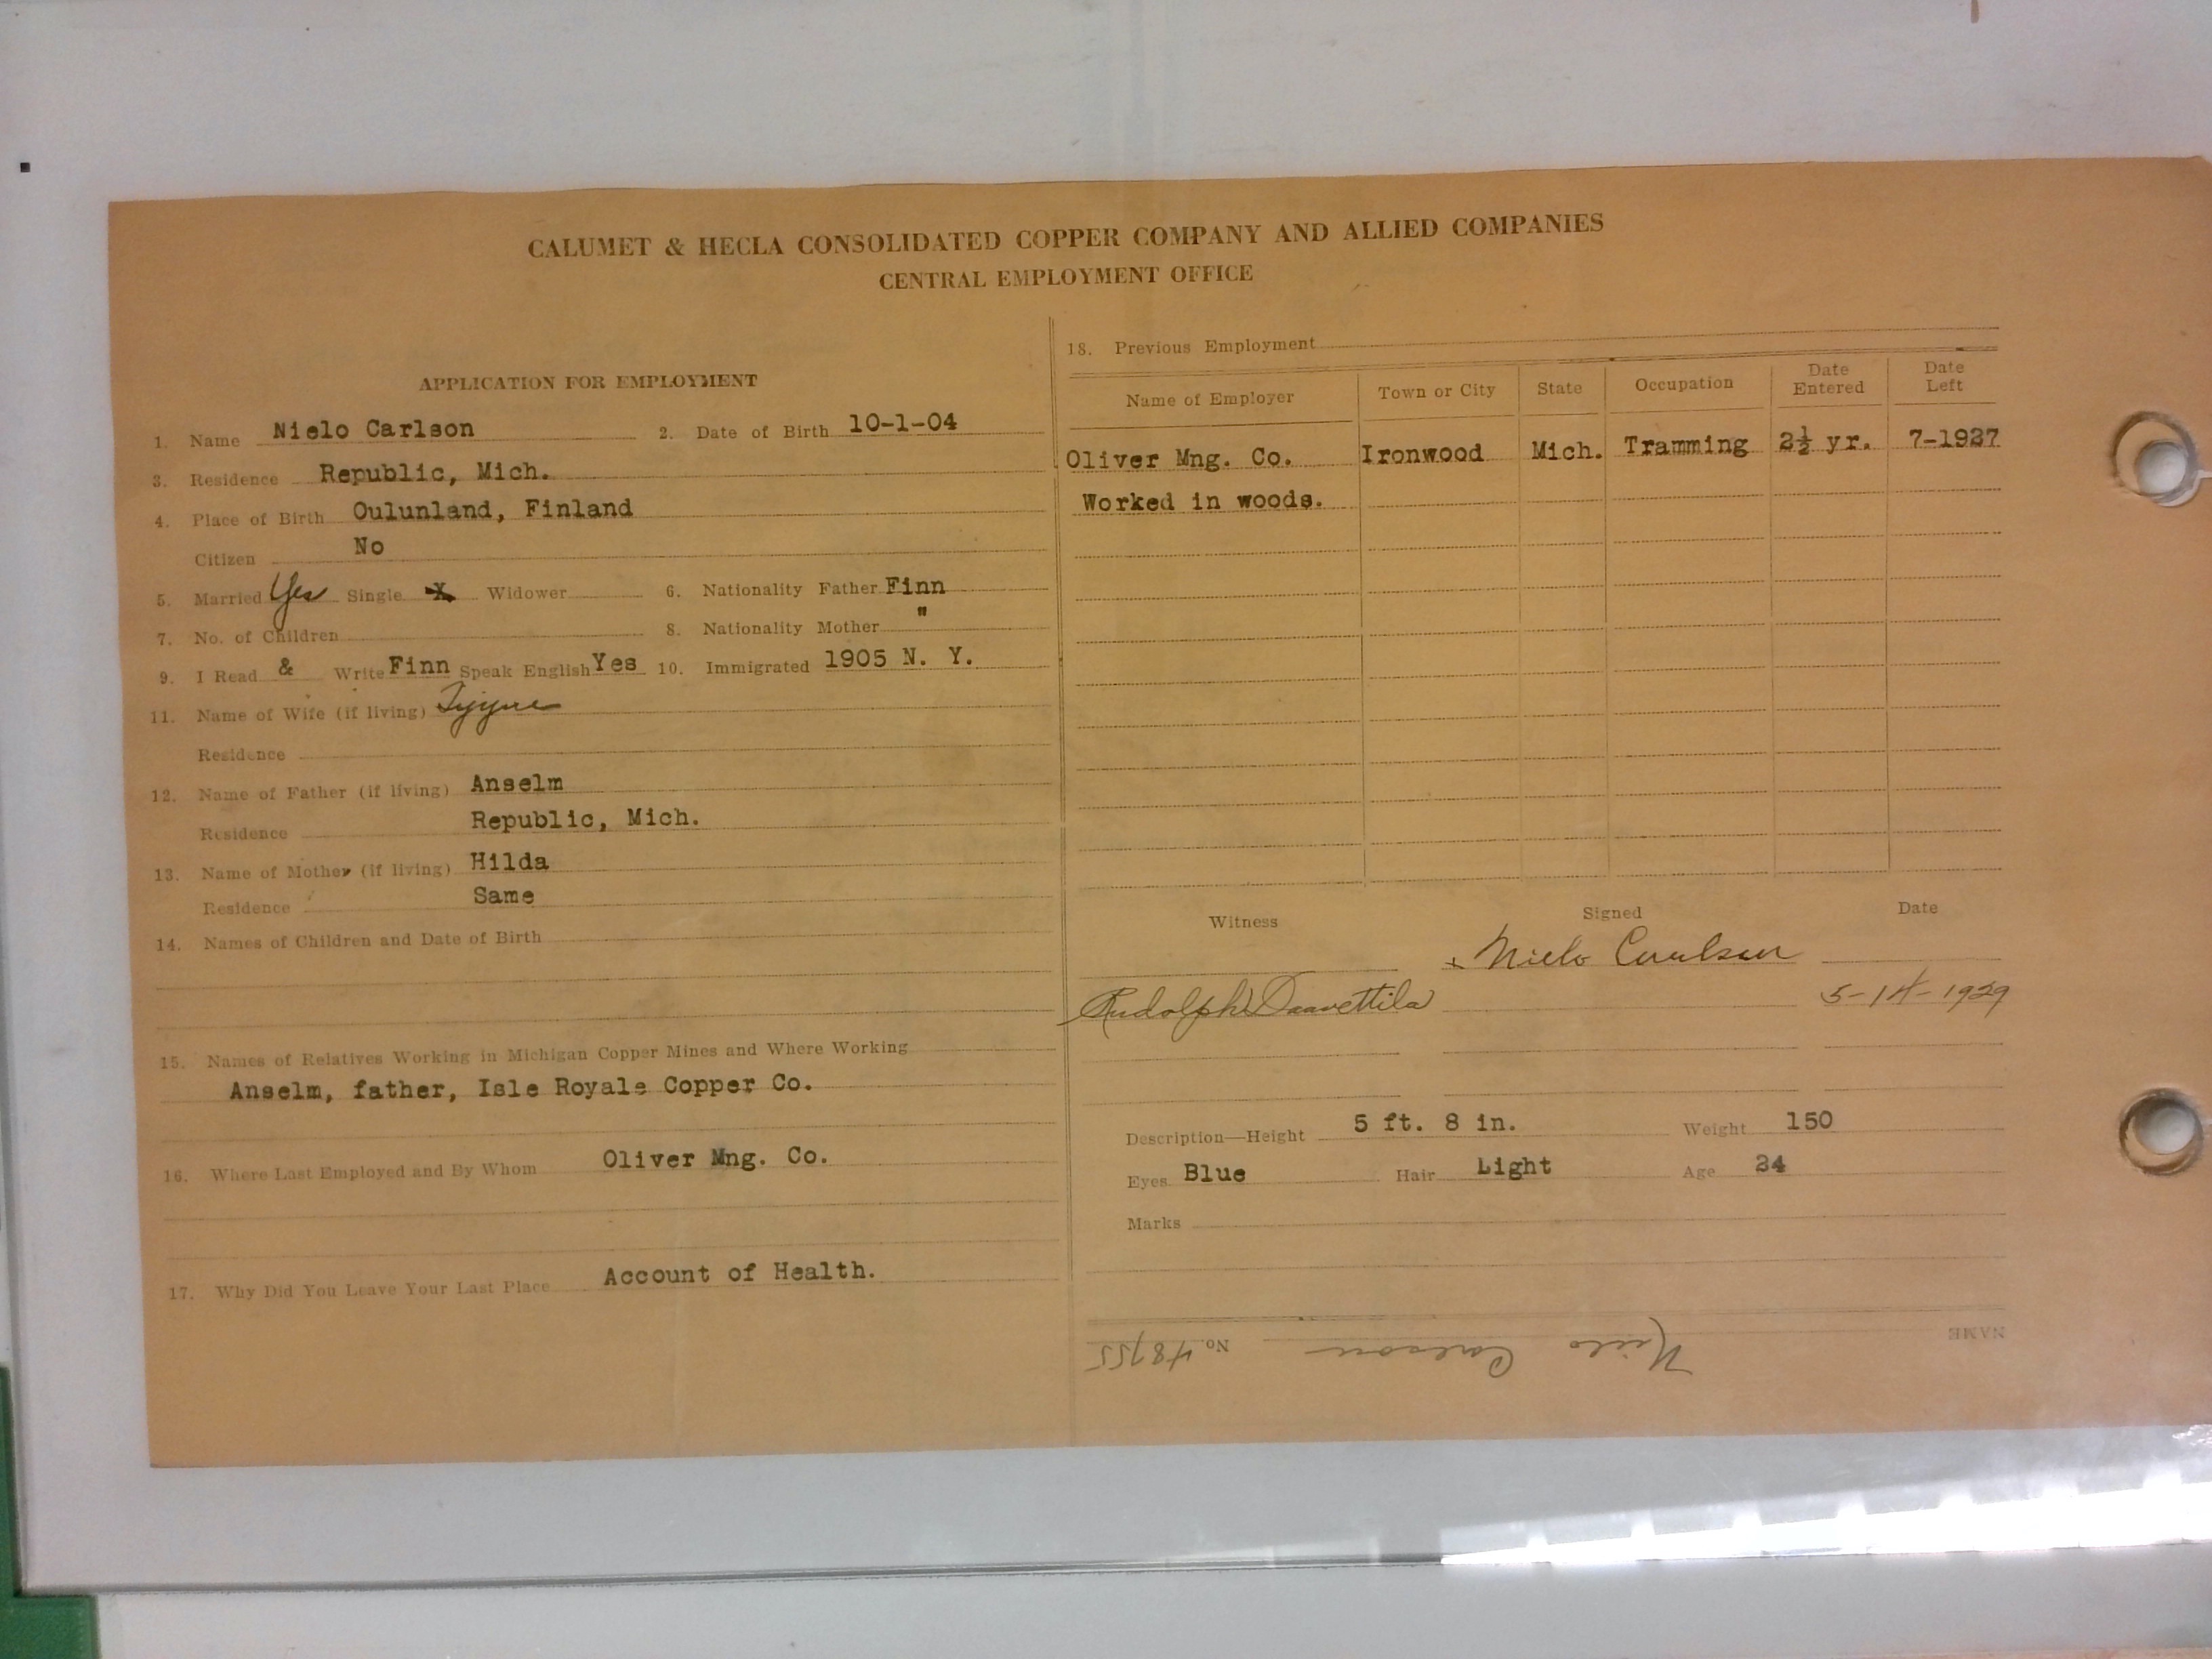 CALUMET & HECLA CONSOLIDATED COPPER COMPANY AND ALLIED COMPANIES
CENTRAL EMPLOYMENT OFFICE
APPLICATION FOR EMPLOYMENT
1. Name Nielo Carlson 2. Date of Birth 10-1-04
3. Residence Republic, Mich.
4. Place of Birth Oulunland, Finland
Citizen No
5. Married Yes Single X Widower 6. Nationality Father Finn
7. No. of Children 8. Nationality Mother "
9. I Read & Write Finn Speak English Yes 10. Immigrated 1905 N. Y.
11. Name of Wife (if living)
Residence
12. Name of Father (if living) Anselm
Residence Republic, Mich.
13. Name of Mother (if living) Hilda
Residence Same
14. Names of Children and Date of Birth
15. Names of Relatives Working in Michigan Copper Mines and Where Working
Anselm, father, Isle Royale Copper Co.
16. Where Last Employed and By Whom Oliver Mng. Co.
17. Why Did You Leave Your Last Place Account of Health.
18. Previous Employment
Name of Employer Town or City State Occupation Date Entered Date Left
Oliver Mng. Co. Ironwood Mich. Tramming 2½ yr. 7-1927
Worked in woods.
Witness Signed Date
x Nielo Carlson
Rudolph Daavettila 5-14-1929
Description—Height 5 ft. 8 in. Weight 150
Eyes Blue Hair Light Age 24
Marks
NAME Nielo Carlson No. 48155